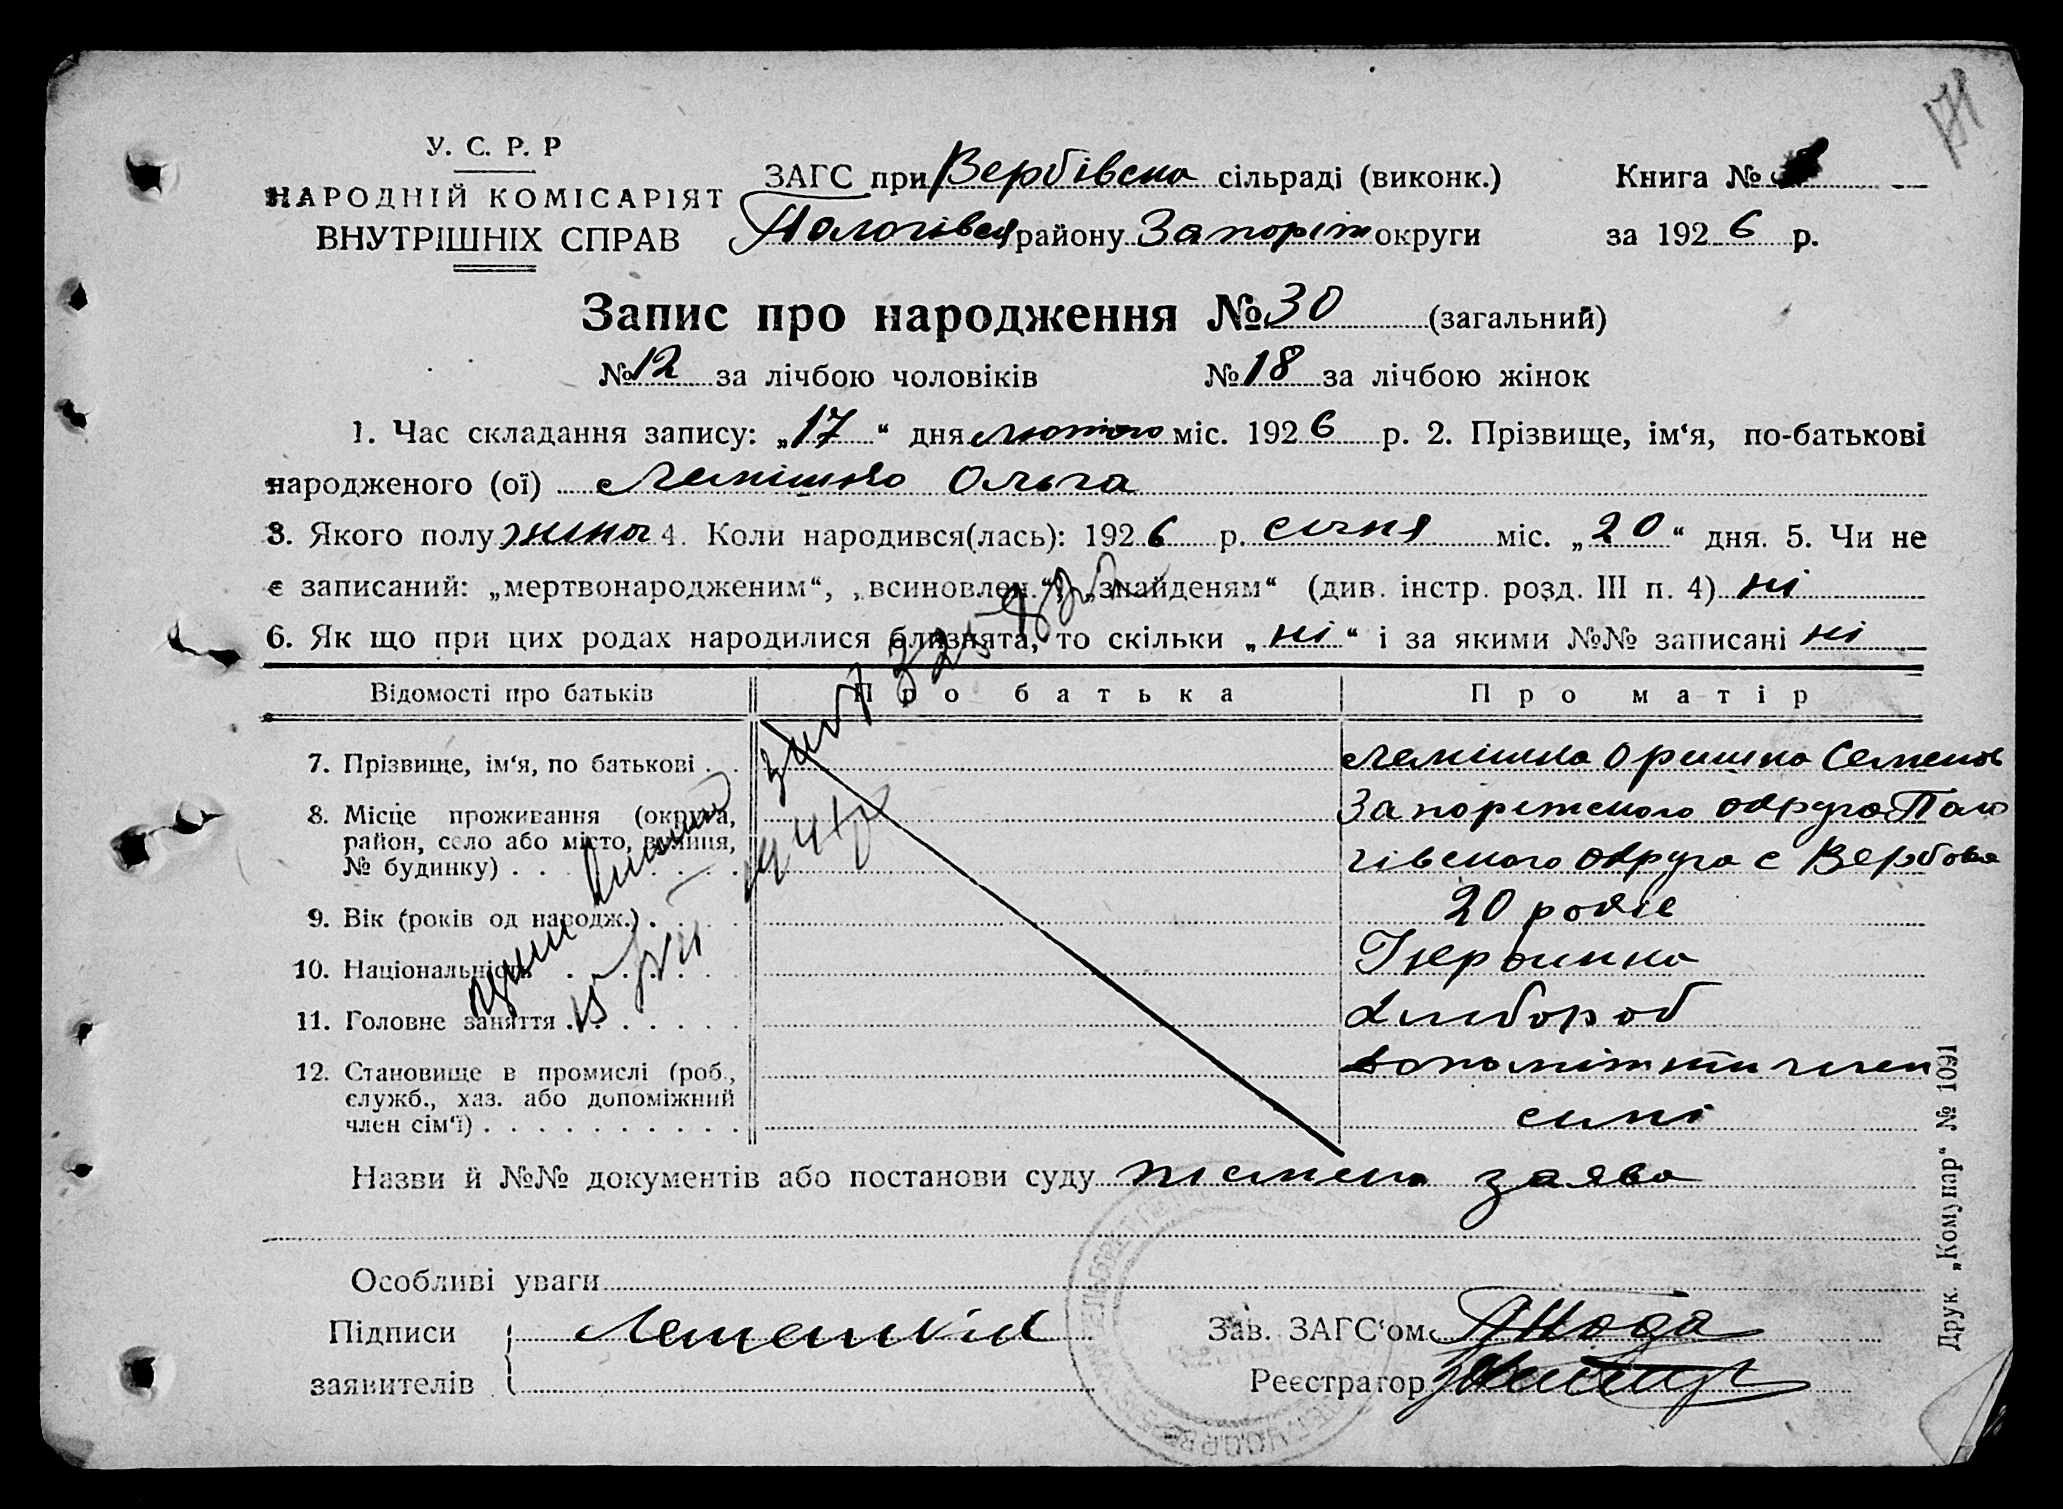 171
У. С. Р. Р
НАРОДНІЙ КОМІСАРІЯТ
ВНУТРІШНІХ СПРАВ
ЗАГС при Вербівська сільраді (виконк.) Книга №
Пологівськ району Запоріж округи за 1926 р.
Запис про народження № 30 (загальний)
№ 12 за лічбою чоловіків № 18 за лічбою жінок
1. Час складання запису: „17“ дня лютого міс. 1926 р. 2. Прізвище, ім‘я, по-батькові
народженого (ої) Лемішко Ольга
3. Якого полу жіноч 4. Коли народився(лась): 1926 р. січня міс. „20“ дня. 5. Чи не
є записаний: „мертвонародженим“, „всиновлен.“, „знайденям“ (див. інстр. розд. III п. 4) ні
6. Як що при цих родах народилися близнята, то скільки „ні“ і за якими №№ записані ні
Відомості про батьків Про батька Про матір
7. Прізвище, ім‘я, по батькові . . Лемішка Оришка Семенов
8. Місце проживання (округа, Запоріжського округа Поло
район, село або місто, вулиця, гівського округа с Вербова
№ будинку) . . . . . . . .
9. Вік (років од народж.) . . . 20 років
10. Національність . . . . . Українка
11. Головне заняття . . . . . . . Хлібороб
12. Становище в промислі (роб., допоміжний член
служб., хаз. або допоміжний сімї
член сім‘ї) . . . . . . . . . . .
Назви й №№ документів або постанови суду пісмена заява
Особливі уваги
Підписи Зав. ЗАГС‘ом
заявителів Реєстратор
Друк. „Комунар“ № 1091